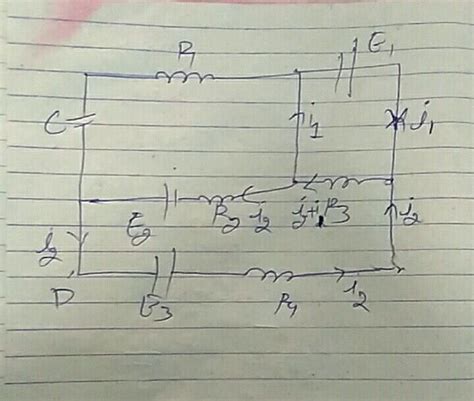 R1 E1
C i1 i1
E2 R2 i2 i2+i1 R3 i2
i2
D E3 R4 i2